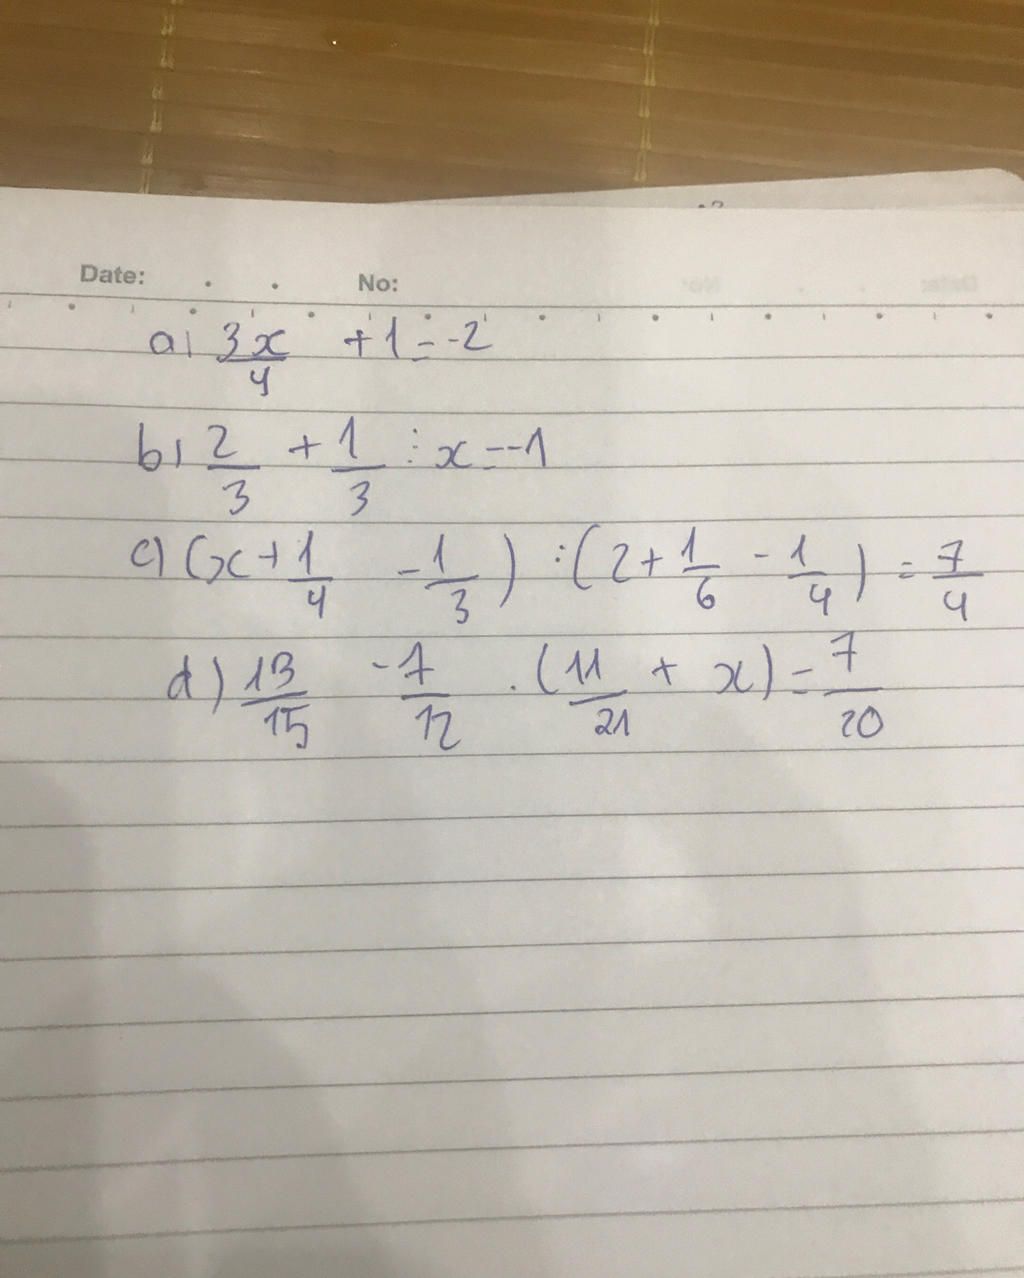 Date: No:
a) 3x/4 + 1 = -2
b) 2/3 + 1/3 : x = -1
c) (x + 1/4 - 1/3) : (2 + 1/6 - 1/4) = 7/4
d) 13/15 - 7/12 . (11/21 + x) = 7/20